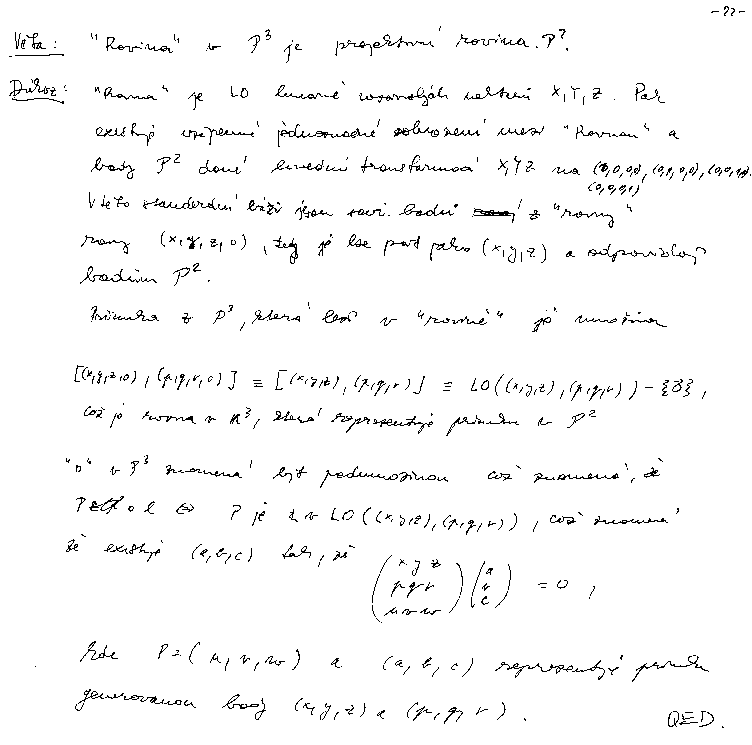 -22-
Věta: "Rovina" v P³ je projektivní rovina P².
Důkaz: "Rovina" je LO lineárně nezávislých X, Y, Z. Pak
existuje vzájemně jednoznačné zobrazení mezi "Rovinou" a
body P² dané lineární transformací X, Y, Z na (1,0,0,0), (0,1,0,0), (0,0,1,0).
(0,0,0,1)
V této standardní bázi jsou souř. bodů z "roviny"
rovny (x, y, z, 0), tedy je lze psát jako (x, y, z) a odpovídají
bodům P².
Přímka z P³, která leží v "rovině" je množina
[(x,y,z,0), (p,q,r,0)] ≡ [(x,y,z), (p,q,r)] ≡ LO((x,y,z), (p,q,r)) - {0},
což je rovina v R³, která reprezentuje přímku v P²
"o" v P³ znamená být podmnožinou což znamená, že
P o l ⇔ P je v LO((x,y,z), (p,q,r)), což znamená
že existuje (a, b, c) tak, že
(x y z
p q r
u v w) (a
b
c) = 0,
kde P = (u, v, w) a (a, b, c) reprezentuje přímku
generovanou body (x, y, z) a (p, q, r). QED.